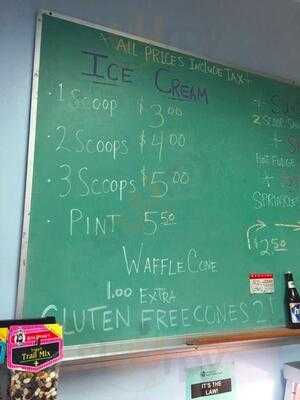 *ALL PRICES INCLUDE TAX*
ICE CREAM
· 1 SCOOP $3.00
· 2 SCOOPS $4.00
· 3 SCOOPS $5.00
· PINT 5.50
WAFFLE CONE
1.00 EXTRA
GLUTEN FREE CONES 2!
2 SCOOP
HOT FUDGE
SPRINKLE
$2.50
TRAIL MIX
IT'S THE
LAW!